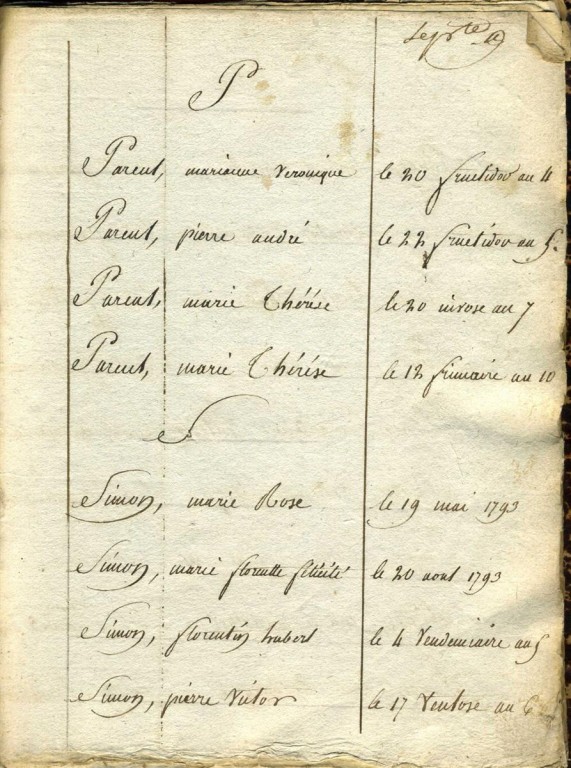 P
Parent, marianne veronique le 20 fructidor an 4
Parent, pierre andré le 22 fructidor an 5.
Parent, marie Thérése le 20 nivose an 7
Parent, marie Thérése le 12 frimaire an 10
S
Simon, marie Rose le 19 mai 1793
Simon, marie florentte félicité le 20 aout 1793
Simon, florentin hubert le 4 Vendemiaire an 5
Simon, pierre Victor le 17 Ventose an 6